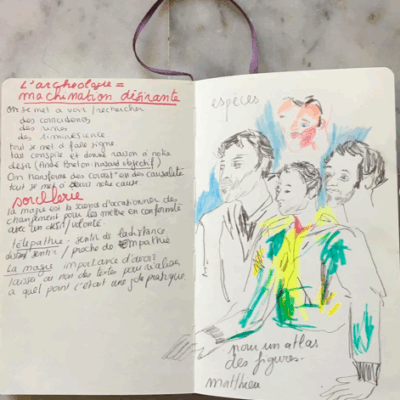 L'archéologie =
machination désirante
on se met à voir / rechercher
des coïncidences
des ruines
des réminiscences
tout se met à faire signe
tout conspire et donne raison à notre
désir (André Breton hasard objectif)
On transforme des en causalité
tout se met à notre cause
sorcellerie
la magie est la science d'occasionner des
changements pour les mettre en conformité
avec un désir / volonté.
télépathie sentir de la distance
sentir / proche de Empathie
La magie importance d'avoir
laissé des textes pour réaliser
à quel point c'était une pratique
espèces
pour un atlas
des figures.
matthieu